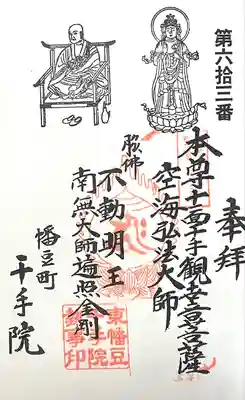 第六拾三番
奉拝
本尊十一面千手観世音菩薩
空海弘法大師
脇佛
不動明王
南無大師遍照金剛
幡豆町
千手院
東幡豆
千手院
納経印